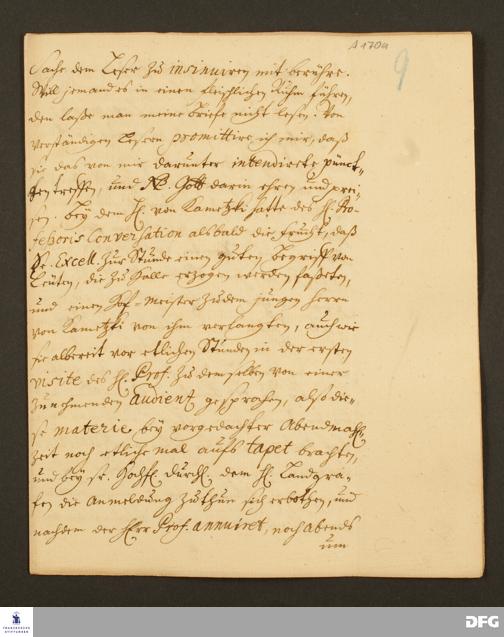 A 170a
9
Sache dem Leser zu insinuiren mit berühre.
Will jemand es in einen fleischlichen Ruhm führen,
den laße man meine briefe nicht lesen. Von
verständigen Lesern promittire ich mir, daß
sie das von mir darunter intendirete pünct-
gen treffen, und NB. Gott darin ehren und prei-
sen. bey dem H. von Kametzki hatte des H. Pro-
feßoris Conversation alsbald die frucht, daß
Se. Excell. zur Stunde einen guten begriff von
Leuten, die zu Halle erzogen werden faßeten,
und einen Hof-Meister zu dem jungen Herrn
von Kametzki von ihm verlangten, auch wie
sie albereit vor etlichen Stunden in der ersten
visite des H. Prof. zu demselben von einer
zunehmenden audient gesprochen, also die-
se materie bey vorgedachter Abendmahl-
zeit noch etliche mal aufs tapet brachten,
und bey sr. Hochfl. Durchl. dem H. Landgra-
fen die Anmeldung zu thun sich erbothen, und
nachdem der Herr Prof. annuiret, noch abends
um
FRANCKESCHE
STIFTUNGEN
DFG